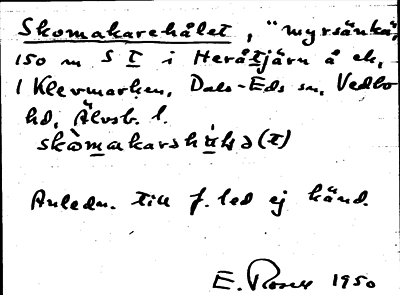 Skomakarehålet, "myrsänka",
150 m S I i Heråtjärn å ek.
1 Klevmarken, Dals-Eds sn, Vedbo
hd, Älvsb. l.
skòmakarshṵ́lə(t)
Anledn. till f. led ej känd.
E. Rosell 1950